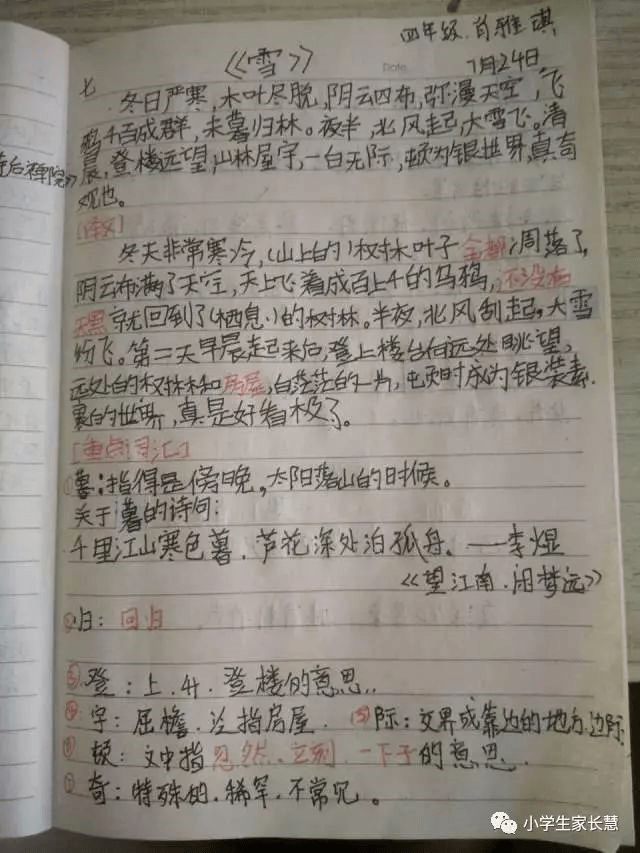 四年级.肖雅琪
《雪》
Date.
7月24日
七
冬日严寒,木叶尽脱,阴云四布,弥漫天空,飞
鸦千百成群,未薯归林。夜半,北风起,大雪飞。清
晨,登楼远望,山林屋宇,一白无际,顿为银世界,真奇
观也。
后禅院》
[译文]
冬天非常寒冷,(山上的)树木叶子全都凋落了,
阴云布满了天空,天上飞着成百上千的乌鸦,还没有
天黑就回到了(栖息)的树林。半夜,北风刮起,大雪
纷飞。第二天早晨走起来后,登上楼台向远处眺望,
远处的树林和房屋,白茫茫的一片,顿时成为银装素
裹的世界,真是好看极了。
[重点词汇]
①薯:指得是傍晚,太阳落山的时候。
关于薯的诗句:
千里江山寒色薯.芦花深处泊孤舟.——李煜
《望江南.闲梦远》
②归:回归
③登:上.升.登楼的意思.
④宇:屈檐.泛指房屋. ⑤际:交界或靠边的地方.边际.
⑥顿:文中指忽然.立刻.一下子的意思.
⑦奇:特殊的.稀罕.不常见。
小学生家长慧